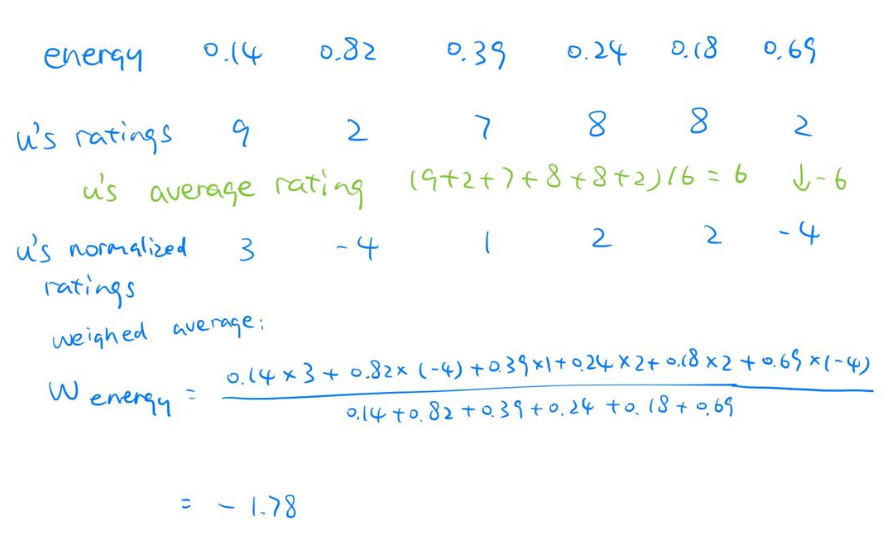 energy 0.14 0.82 0.39 0.24 0.18 0.69
u's ratings 9 2 7 8 8 2
u's average rating (9+2+7+8+8+2)/6 = 6 ↓-6
u's normalized 3 -4 1 2 2 -4
ratings
weighed average:
W energy = 0.14 × 3 + 0.82 × (-4) + 0.39 × 1 + 0.24 × 2 + 0.18 × 2 + 0.69 × (-4)
0.14 + 0.82 + 0.39 + 0.24 + 0.18 + 0.69
= - 1.78